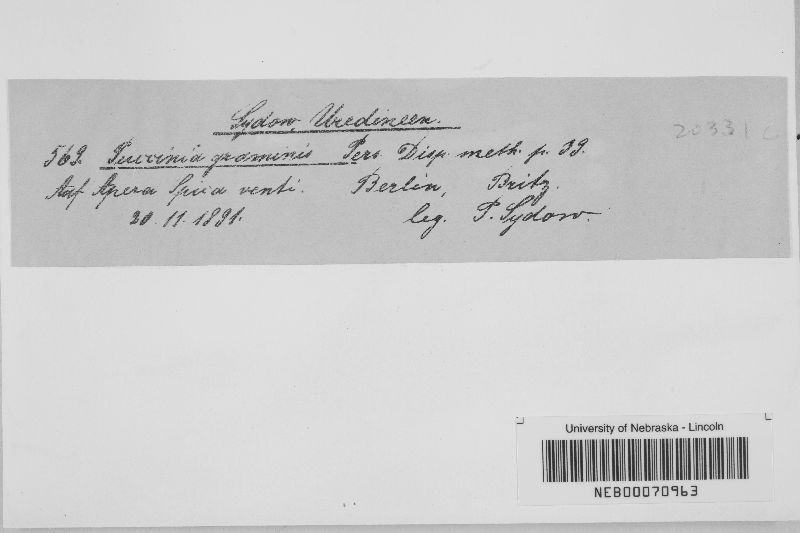 Sydow, Uredineen.
20331 c
569. Puccinia graminis Pers. Disp. meth. p. 39.
Auf Apera Spica venti. Berlin, Britz.
20.11.1891. leg. P. Sydow.
University of Nebraska - Lincoln
NEB00070963